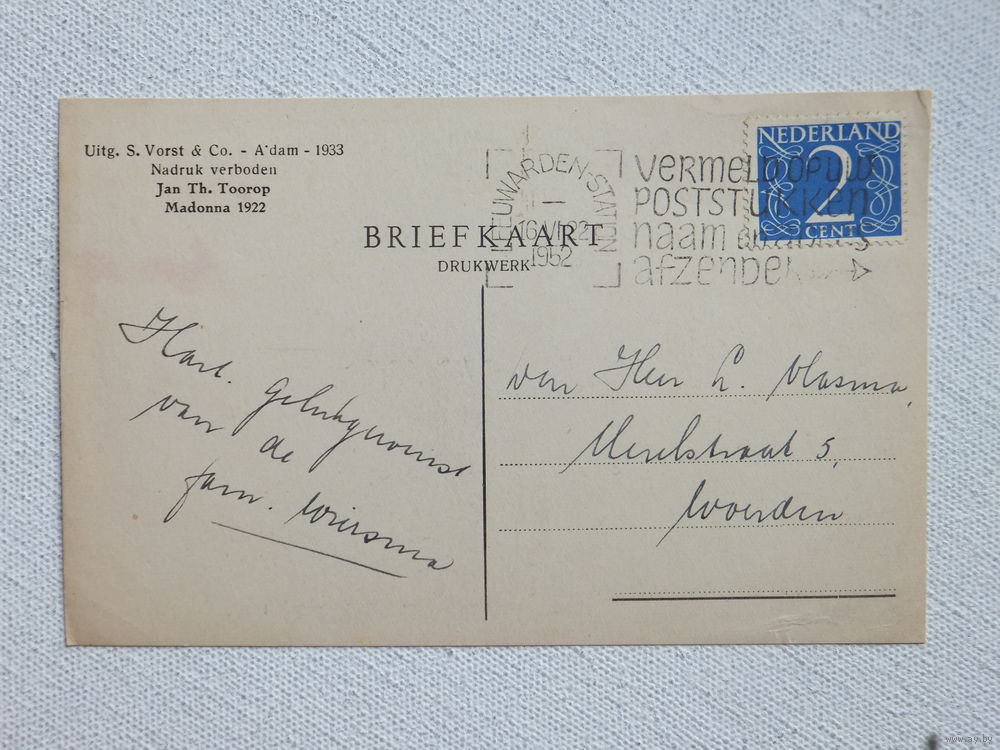 Uitg. S. Vorst & Co. - A'dam - 1933
Nadruk verboden
Jan Th. Toorop
Madonna 1922
BRIEFKAART
DRUKWERK
LEEUWARDEN-STATION
16.VI.22
1952
VERMELD OP UW
POSTSTUKKEN
naam en
afzender
NEDERLAND
2
CENT
Hart. gelukgewenst
van de
fam. Wiersma
den Heer L. Vlasma,
Merelstraat 5,
Woerden
www.ay.by